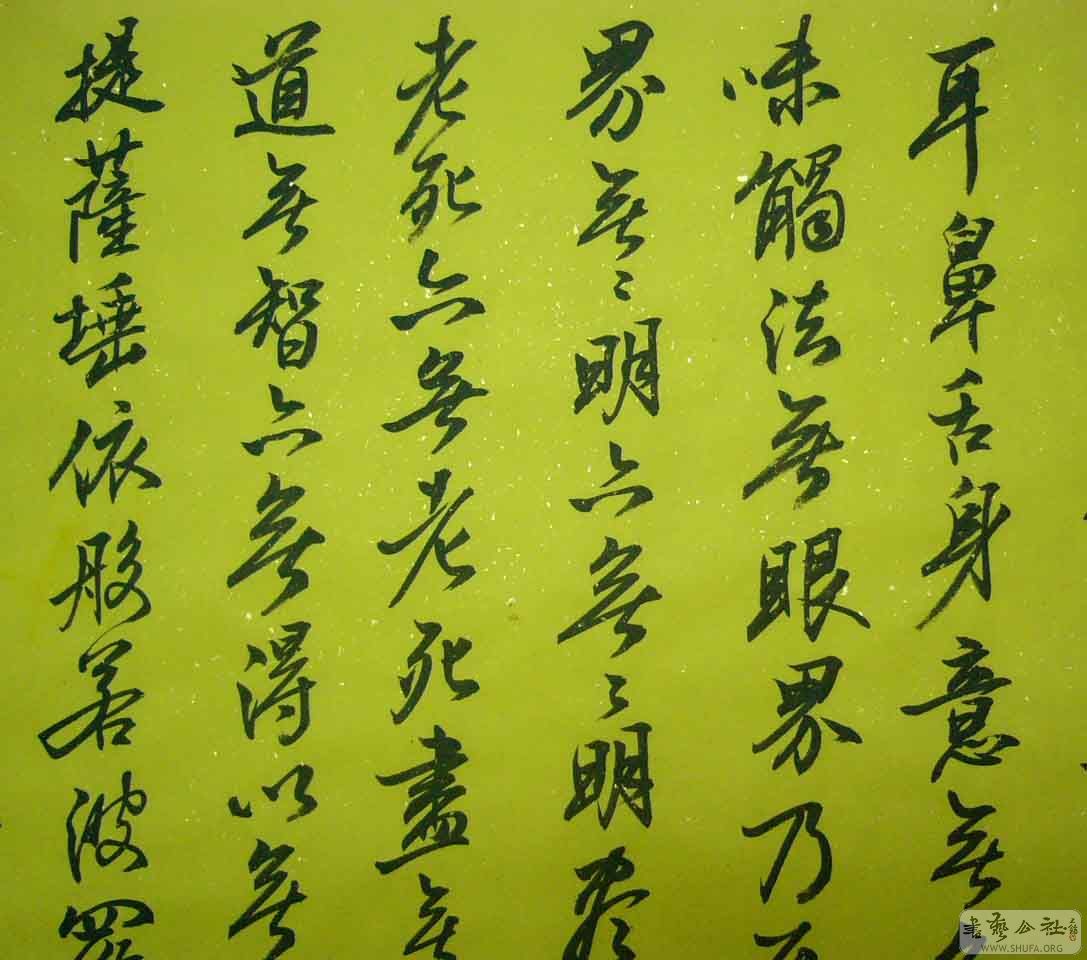 耳鼻舌身意無
味觸法無眼界乃
界無〻明亦無〻明尽
老死亦無老死盡無
道無智亦無得以無
提薩埵依般若波羅
書藝公社
WWW.SHUFA.ORG